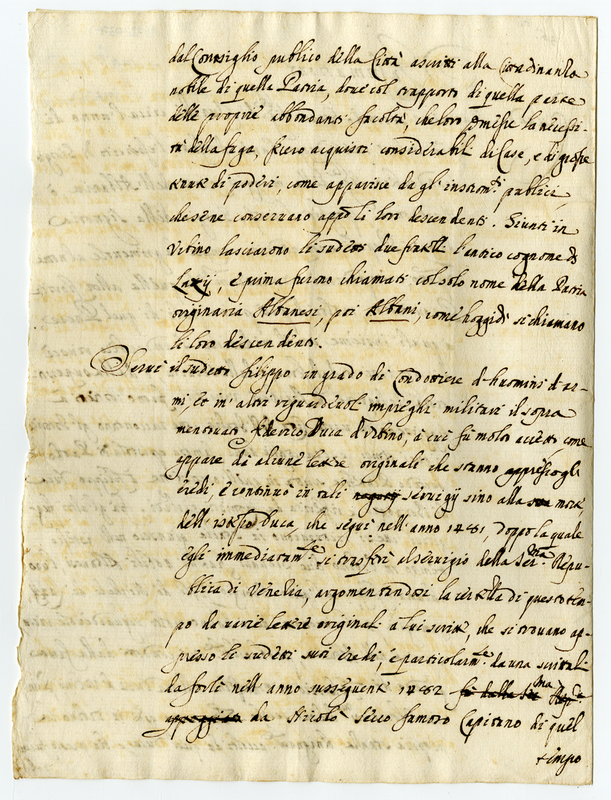 dal Consiglio publico della Città ascritti alla Cittadinanza
nobile di quella Patria, dove col trapporto di quella parte
delle proprie abbondanti facoltà, che loro permesse la necessi-
tà della fuga, fecero acquisti considerabili di Case, e di grosse
tenute di poderi, come apparisce da gl' instrom.ti publici,
che sene conservano appò li loro descendenti. Giunti in
Urbino lasciarono li sudetti due fratelli l'antico cognome di
Lazij, e prima furono chiamati col solo nome della Patria
originaria Albanesi, poi Albani, come hoggidì si chiamano
li loro descendenti.
Servì il sudetto Filippo in grado di Condottiere d'huomini d'ar-
mi, et in altri riguardevoli impieghi militari il sopra
mentovato Federico Duca d'Urbino, à cui fù molto accetto, come
appare da alcune lettere originali che stanno appresso gli
eredi, e continuò in tali servigij sino alla morte
dell' istesso Duca, che seguì nell' anno 1481, doppo la quale
egli immediatam.te si trasferì al servigio della Ser.ma Repu-
blica di Venezia, argomentandosi la certezza di questo tem-
po da varie lettere originali à lui scritte, che si trovano ap-
presso li sudetti suoi eredi, e particolarm.te da una scrittali
da Forlì nell' anno susseguente 1482 fù dalla Ser.ma Rep.ca
appoggiata da Nicolò Secco famoso Capitano di quel
tempo